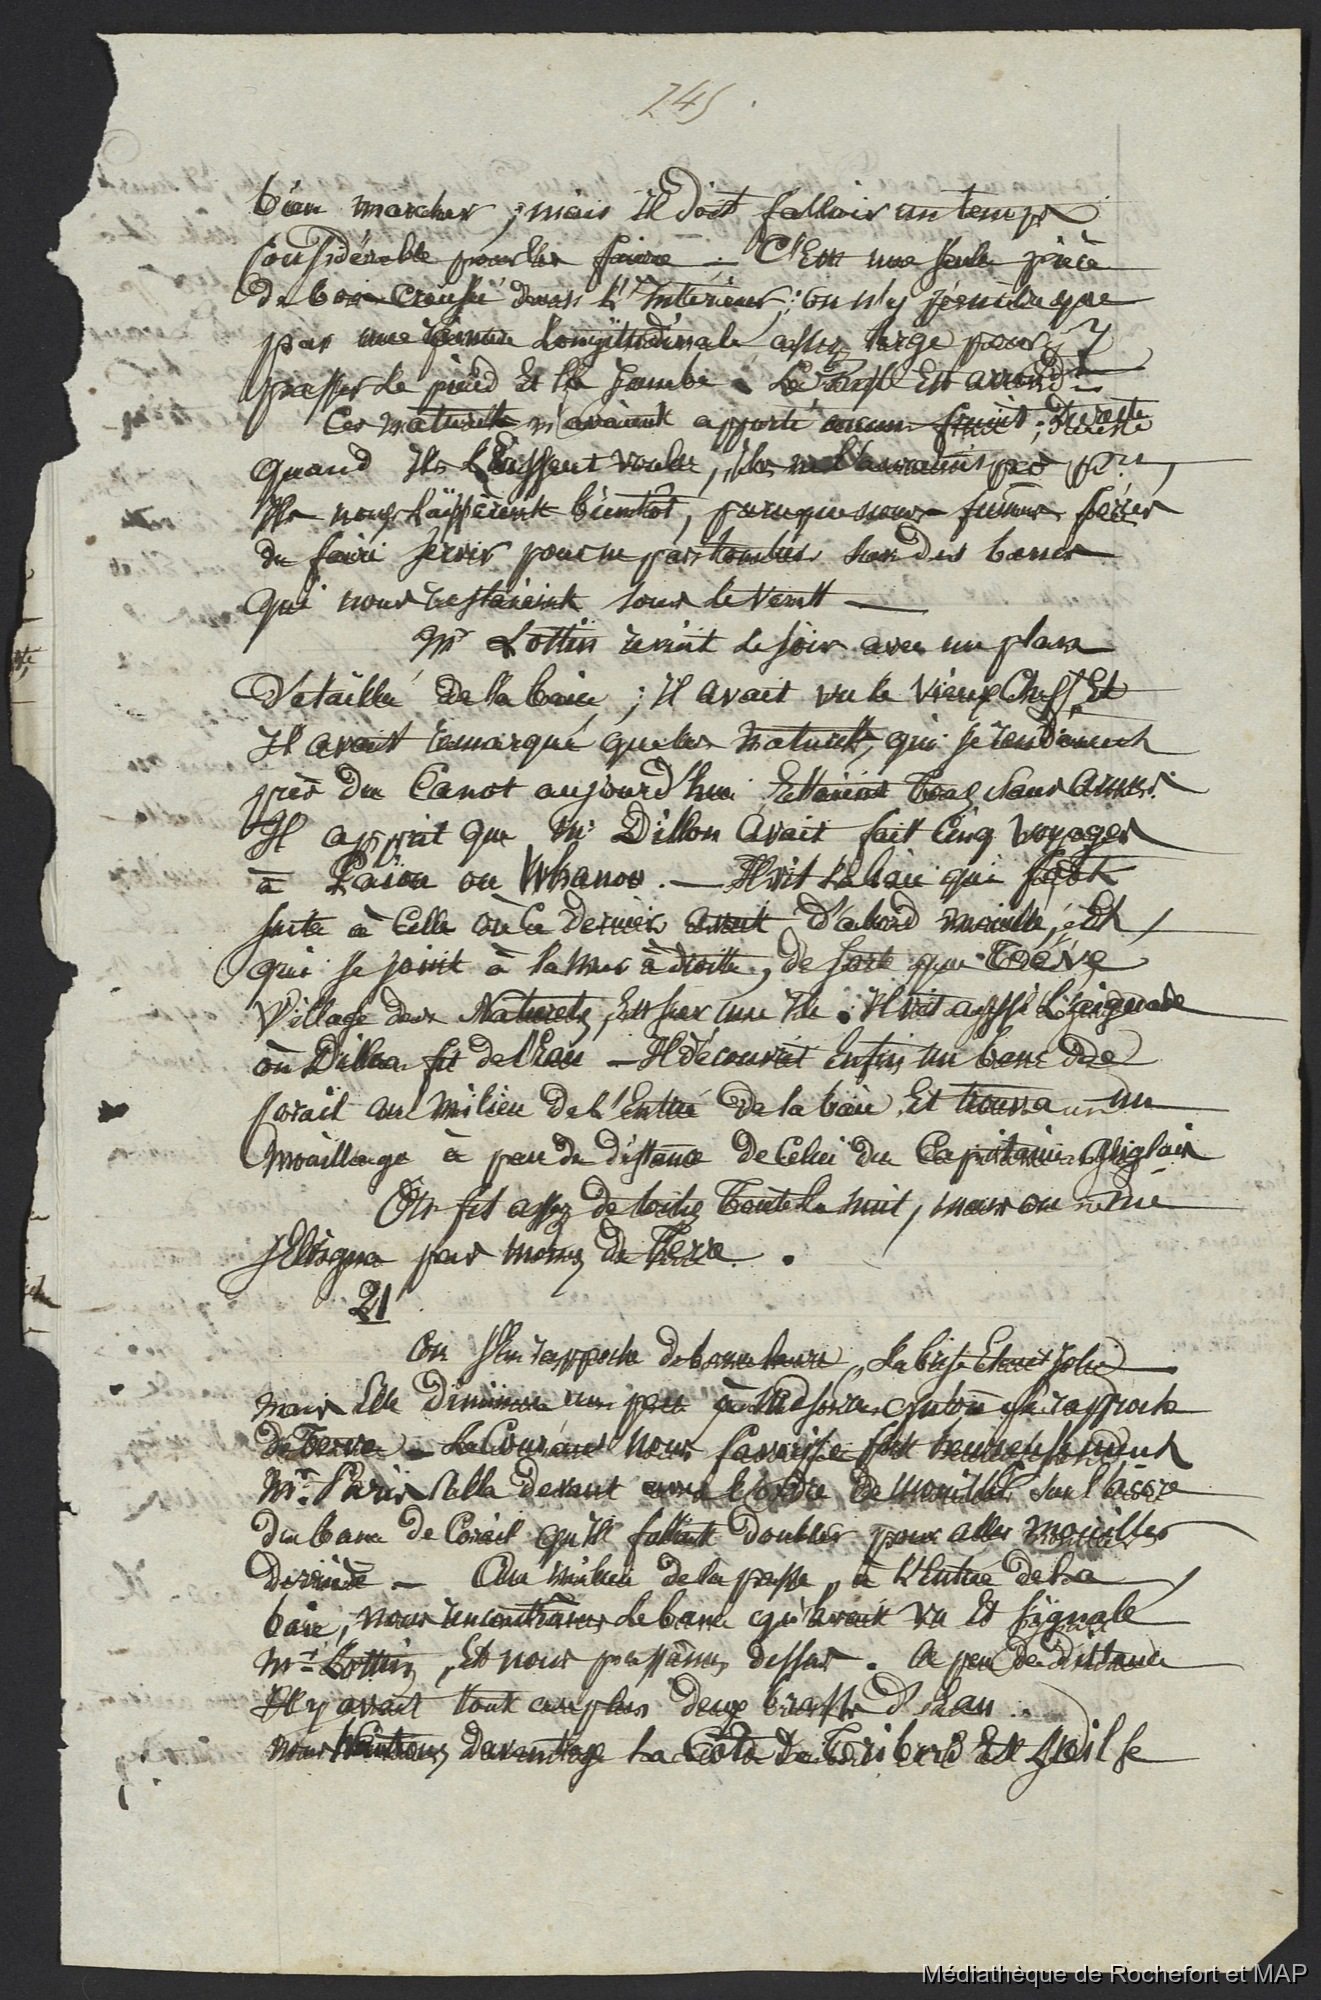 245
bien marcher ; mais il doit falloir un temps
considérable pour les faire – C'est une seule pièce
de bois creusée dans l'intérieur ; on n'y pénètre que
par une longitudinale assez large pour y
passer le pied et la jambe . Le est arrondi
Ces naturels n'avaient apporté aucun fruit ; du reste
quand ils l'eussent voulu, ils ne l'auraient pas pu,
Ils nous laissèrent bientôt, parceque nous fumes forcés
de faire servir pour ne pas tomber sur des bancs
qui nous restaient sous le vent —
Mr Lottin revint le soir avec un plan
détaillé de la baie ; il avait vu le vieux Chef, Et
il avait remarqué que les naturels, qui se rendirent
près du Canot aujourd'hui Etaient tous sans armes.
Il apprit que Mr Dillon avait fait Cinq voyages
à Païou ou Whanou . — Il vit la baie qui fait
suite à Celle où Ce dernier avait d'abord mouillé, Et
qui se joint à la mer à droite, de sorte que Tévé
Village des Naturels, Est sur une île . Il vit aussi l'aiguade
où Dillon fit de l'Eau — Il découvrit Enfin un banc de
Corail au milieu de l'Entrée de la baie Et trouva un
mouillage à peu de distance de Celui du Capitaine anglais
On fit assez de toile toute la nuit, mais on ne
s'Eloigna pas moins de Terre .
21
On s'En rapprocha de bonne heure, la brise Etait jolie
mais Elle diminua un peu à mesure qu'on se rapprocha
de Terre – Le Courant nous favorisa fort heureusement
Mr Paris alla devant avec l'ordre de mouiller sur l'accore
du banc de Corail qu'il fallait doubler pour aller mouiller
derrière — Au milieu de la passe, à l'Entrée de la
baie, nous rencontrâmes le banc qu'avait vu Et signalé
Mr Lottin, Et nous passâmes dessus . A peu de distance
Il y avait tout au plus deux brasses d'Eau .
nous davantage la Côte de Et qu'il se
Médiathèque de Rochefort et MAP